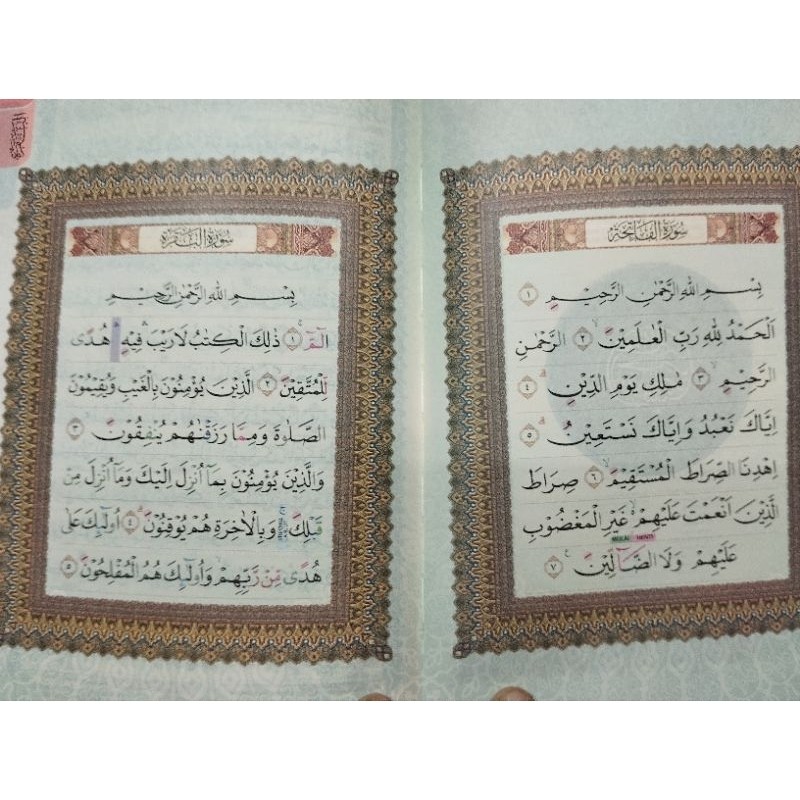 سُورَةُ الْفَاتِحَةِ
بِسْمِ اللهِ الرَّحْمٰنِ الرَّحِيْمِ ۝١
اَلْحَمْدُ لِلّٰهِ رَبِّ الْعٰلَمِيْنَۙ ۝٢ الرَّحْمٰنِ
الرَّحِيْمِۙ ۝٣ مٰلِكِ يَوْمِ الدِّيْنِۗ ۝٤
اِيَّاكَ نَعْبُدُ وَاِيَّاكَ نَسْتَعِيْنُۗ ۝٥
اِهْدِنَا الصِّرَاطَ الْمُسْتَقِيْمَۙ ۝٦ صِرَاطَ
الَّذِيْنَ اَنْعَمْتَ عَلَيْهِمْ ەۙ غَيْرِ الْمَغْضُوْبِ
عَلَيْهِمْ وَلَا الضَّاۤلِّيْنَ ۝٧
سُورَةُ الْبَقَرَةِ
بِسْمِ اللهِ الرَّحْمٰنِ الرَّحِيْمِ
الۤمّۤۚ ۝١ ذٰلِكَ الْكِتٰبُ لَا رَيْبَۛ فِيْهِۛ هُدًى
لِّلْمُتَّقِيْنَۙ ۝٢ الَّذِيْنَ يُؤْمِنُوْنَ بِالْغَيْبِ وَيُقِيْمُوْنَ
الصَّلٰوةَ وَمِمَّا رَزَقْنٰهُمْ يُنْفِقُوْنَۙ ۝٣
وَالَّذِيْنَ يُؤْمِنُوْنَ بِمَآ اُنْزِلَ اِلَيْكَ وَمَآ اُنْزِلَ مِنْ
قَبْلِكَۚ وَبِالْاٰخِرَةِ هُمْ يُوْقِنُوْنَۗ ۝٤ اُولٰۤىِٕكَ عَلٰى
هُدًى مِّنْ رَّبِّهِمْۙ وَاُولٰۤىِٕكَ هُمُ الْمُفْلِحُوْنَ ۝٥